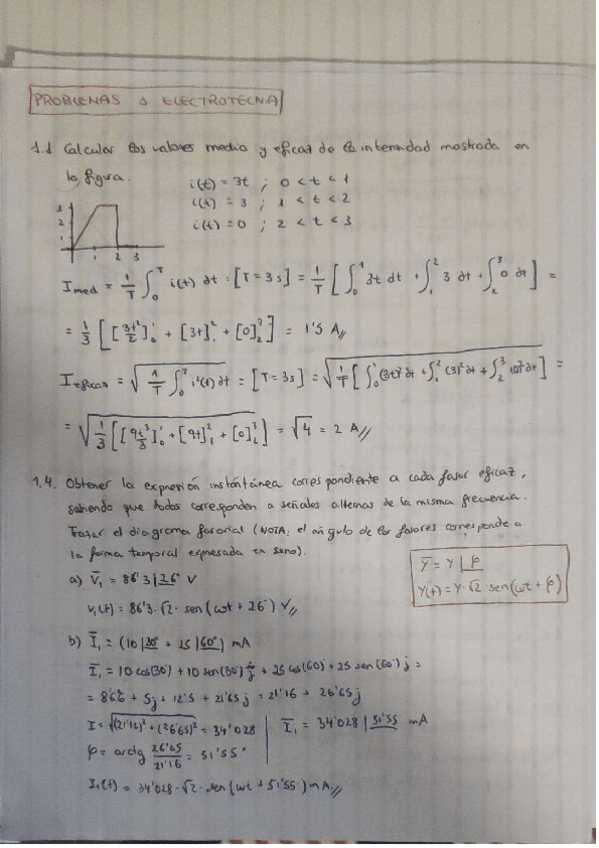 PROBLEMAS ELECTROTECNIA
1.1 Calcular los valores medio y eficaz de la intensidad mostrada en
la figura.
i(t) = 3t ; 0 < t < 1
i(t) = 3 ; 1 < t < 2
i(t) = 0 ; 2 < t < 3
3
2
1
1 2 3
I med = 1/T ∫₀ᵀ i(t) dt = [T = 3s] = 1/T [ ∫₀¹ 3t dt + ∫₁² 3 dt + ∫₂³ 0 dt ] =
= 1/3 [ [3t²/2]₀¹ + [3t]₁² + [0]₂³ ] = 1'5 A//
I eficaz = √(1/T ∫₀ᵀ i²(t) dt) = [T = 3s] = √(1/T [ ∫₀¹ (3t)² dt + ∫₁² (3)² dt + ∫₂³ (0)² dt ]) =
= √(1/3 [ [9t³/3]₀¹ + [9t]₁² + [0]₂³ ]) = √4 = 2 A//
1.4. Obtener la expresión instántánea correspondiente a cada fasor eficaz,
sabiendo que todos corresponden a señales alternas de la misma frecuencia.
Trazar el diagrama fasorial (NOTA: el ángulo de los fasores corresponde a
la forma temporal expresada en seno).
Y̅ = Y |φ
y(t) = Y·√2 · sen(ωt + φ)
a) V̅₁ = 86'3 |26° V
v₁(t) = 86'3·√2· sen(ωt + 26°) V//
b) I̅₁ = (10 |30° + 25 |60°) mA
I̅₁ = 10 cos(30°) + 10 sen(30°) j + 25 cos(60°) + 25 sen(60°) j =
= 8'66 + 5j + 12'5 + 21'65 j = 21'16 + 26'65 j
I = √((21'16)² + (26'65)²) = 34'028
I̅₁ = 34'028 |51'55 mA
φ = arctg 26'65/21'16 = 51'55°
I₁(t) = 34'028·√2· sen(ωt + 51'55°) mA//